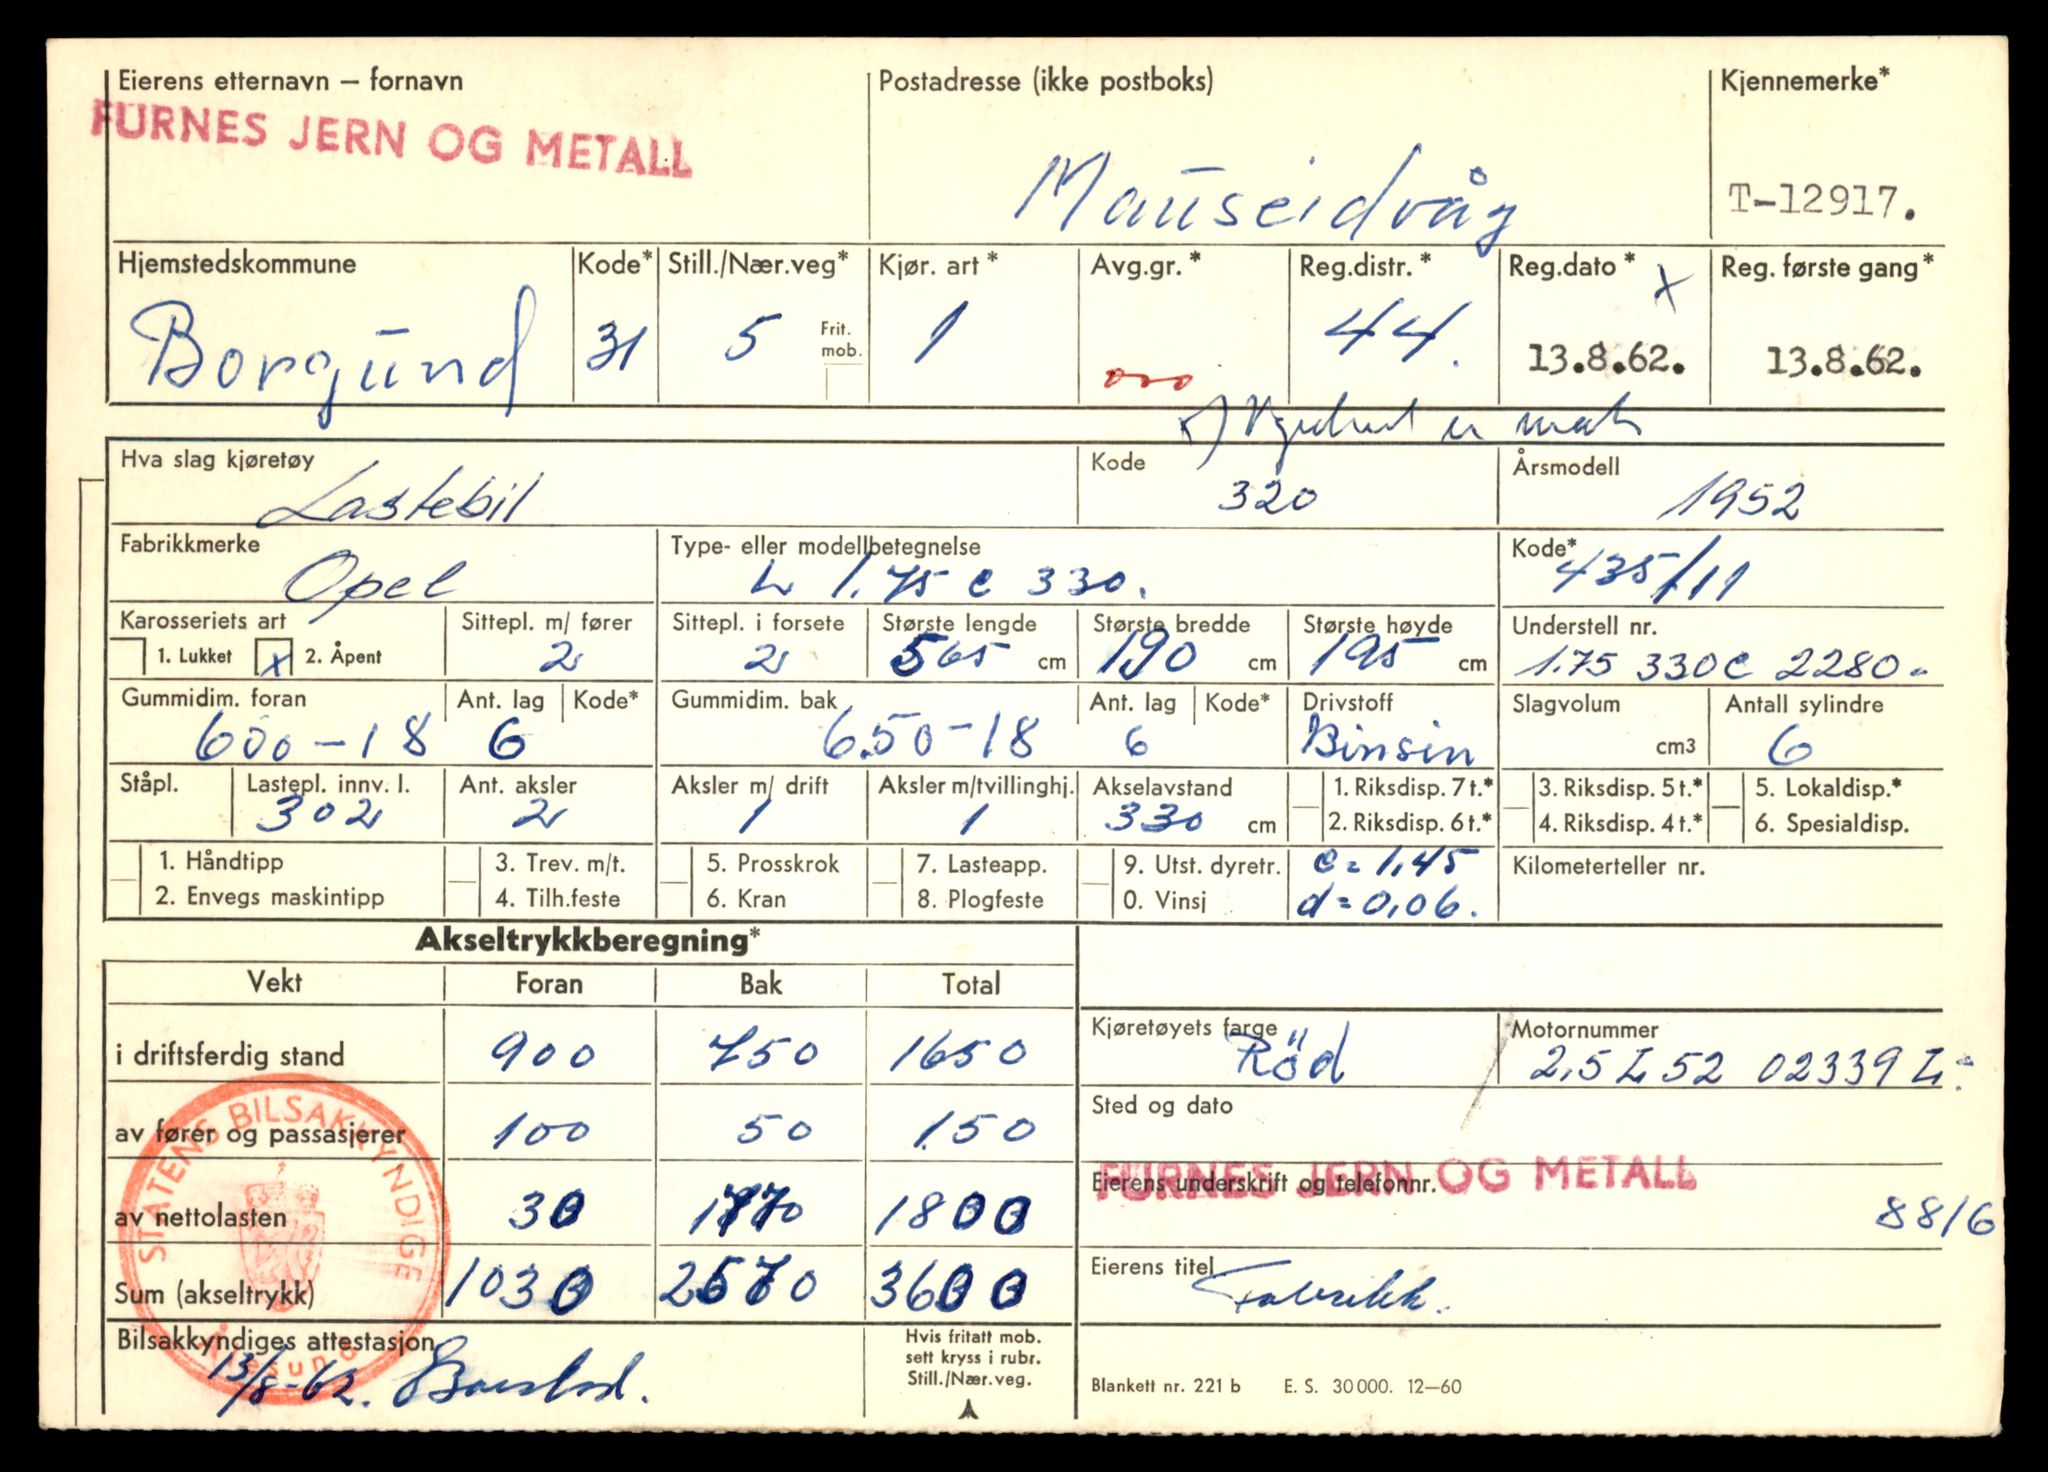 Eierens etternavn – fornavn Postadresse (ikke postboks) Kjennemerke*
FURNES JERN OG METALL
Mauseidvåg T-12917.
Hjemstedskommune Kode* Still./Nær.veg* Kjør. art* Avg.gr.* Reg.distr.* Reg.dato* x Reg. første gang*
Borgund 31 5 Frit. mob. 1 000 44. 13.8.62. 13.8.62.
x)
Hva slag kjøretøy Kode Årsmodell
Lastebil 320 1952
Fabrikkmerke Type- eller modellbetegnelse Kode*
Opel L 1.75 c 330. 435/11
Karosseriets art Sittepl. m/ fører Sittepl. i forsete Største lengde Største bredde Største høyde Understell nr.
1. Lukket x 2. Åpent 2 2 565 cm 190 cm 195 cm 1.75 330 c 2280.
Gummidim. foran Ant. lag Kode* Gummidim. bak Ant. lag Kode* Drivstoff Slagvolum Antall sylindre
600-18 6 6.50-18 6 Binsin cm3 6
Ståpl. Lastepl. innv. l. Ant. aksler Aksler m/ drift Aksler m/tvillinghj. Akselavstand 1. Riksdisp. 7 t.* 3. Riksdisp. 5 t.* 5. Lokaldisp.*
302 2 1 1 330 cm 2. Riksdisp. 6 t.* 4. Riksdisp. 4 t.* 6. Spesialdisp.
1. Håndtipp 3. Trev. m/t. 5. Prosskrok 7. Lasteapp. 9. Utst. dyretr. c = 1,45 Kilometerteller nr.
2. Envegs maskintipp 4. Tilh.feste 6. Kran 8. Plogfeste 0. Vinsj d = 0,06.
Akseltrykkberegning*
Vekt Foran Bak Total
Kjøretøyets farge Motornummer
i driftsferdig stand 900 750 1650 Röd 2,5 L 52 02339 L.
Sted og dato
av fører og passasjerer 100 50 150
FURNES JERN OG METALL
Eierens underskrift og telefonnr.
av nettolasten 30 1770 1800 8816
Eierens titel
Sum (akseltrykk) 1030 2570 3600 Fabrikk.
STATENS BILSAKKYNDIGE
Ålesund
Bilsakkyndiges attestasjon Hvis fritatt mob.
sett kryss i rubr.
13/8-62. Still./Nær.veg.
Blankett nr. 221 b E. S. 30 000. 12–60